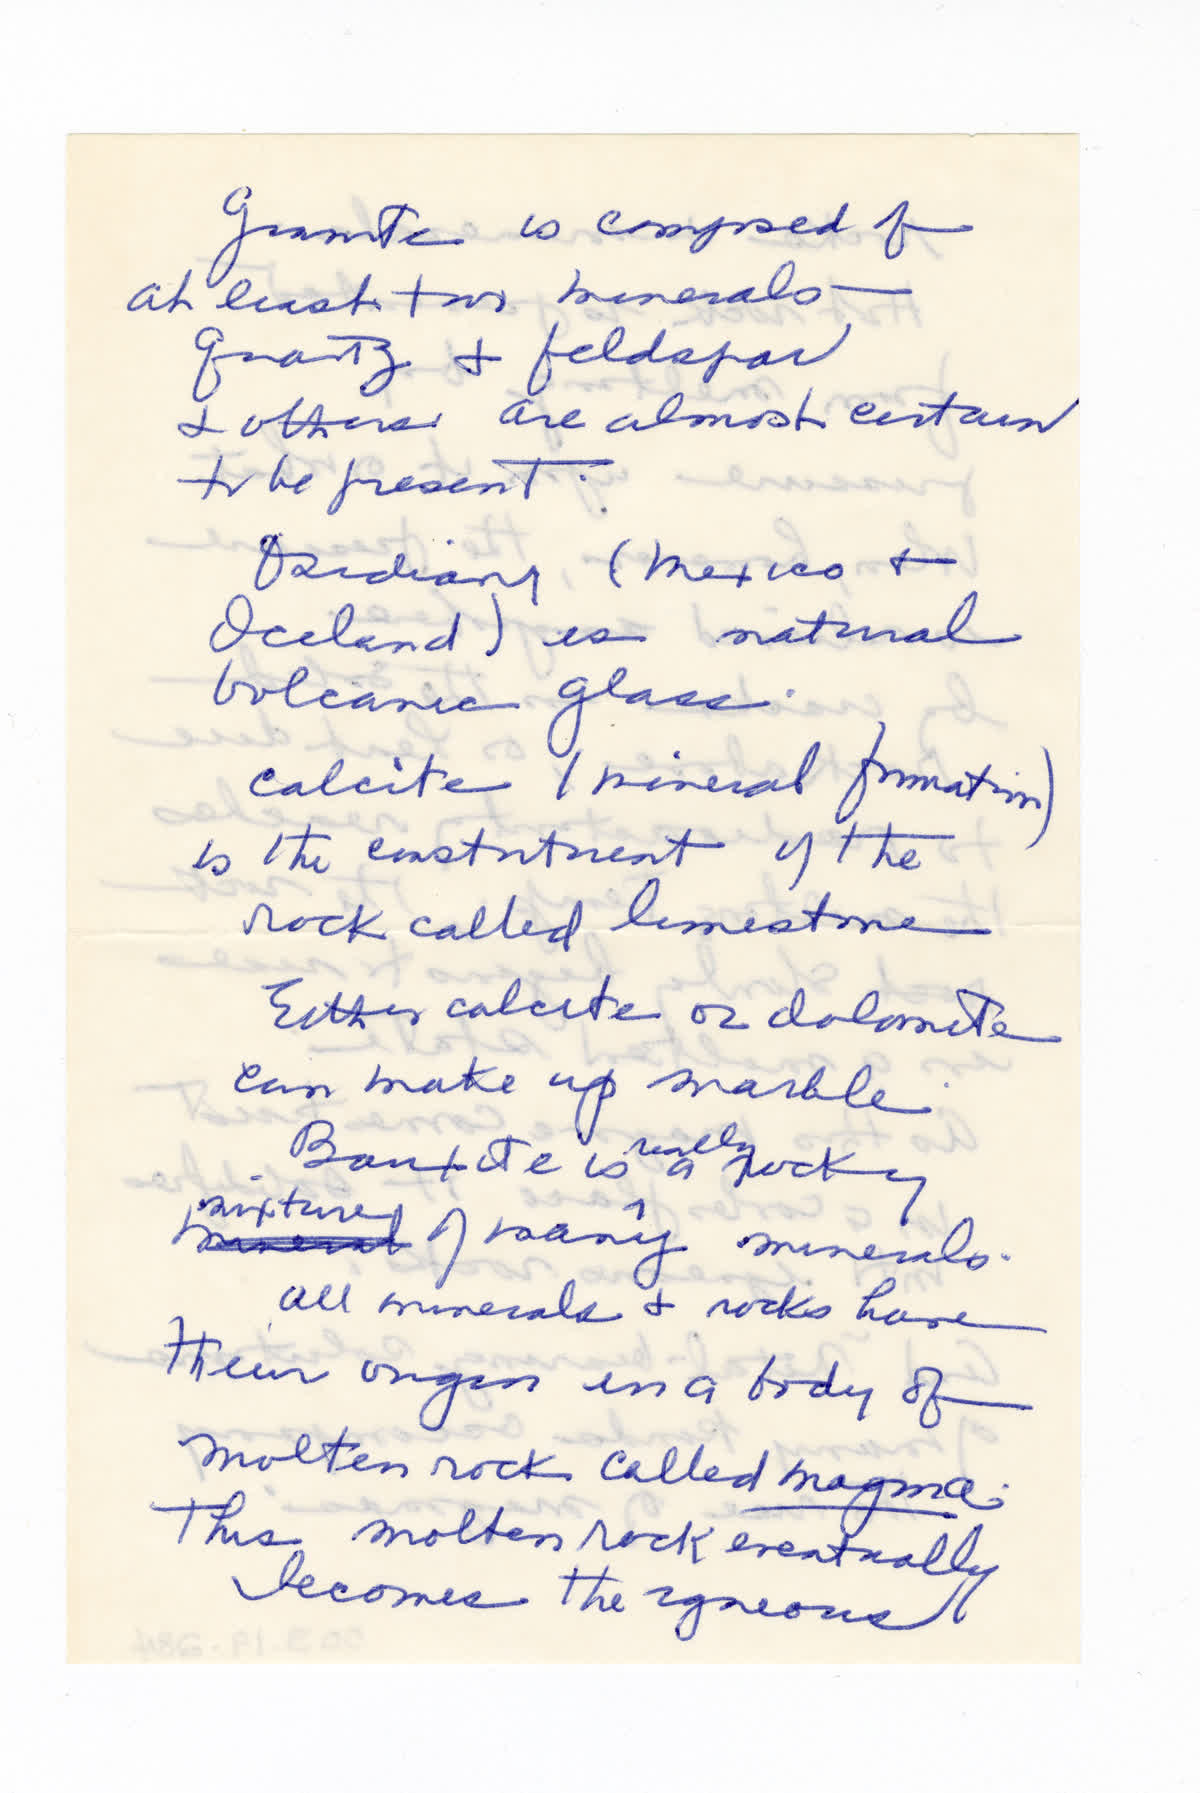 Granite is composed of
at least two minerals —
quartz & feldspar
& others are almost certain
to be present.
Obsidian (Mexico &
Iceland) is natural
volcanic glass.
calcite (mineral formation)
is the constituent of the
rock called limestone
Either calcite or dolomite
can make up marble.
Bauxite is really a rocky
mixture mineral of many minerals.
All minerals & rocks have
their origin in a body of
molten rock called magma.
This molten rock eventually
becomes the igneous